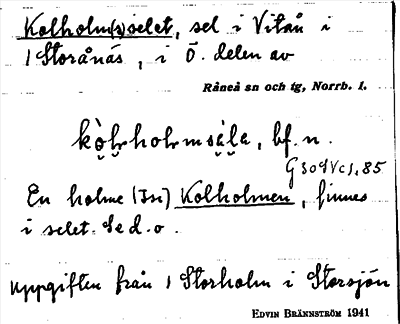 Kolholm(s)selet, sel i Vitån i
1 Storånäs, i Ö. delen av
Råneå sn och tg, Norrb. l.
bf. n.
En holme (Jsr) Kolholmen, finnes
i selet. Se d. o.
uppgiften från 1 Storholm i Storsjön
EDVIN BRÄNNSTRÖM 1941